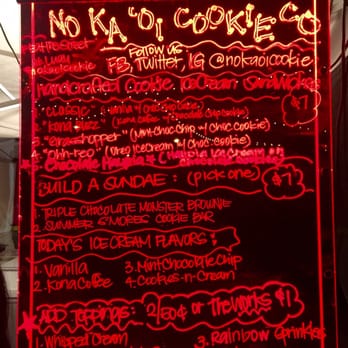 NO KA 'OI COOKIE CO
Follow us
FB, Twitter, IG @nokaoicookie
Handcrafted Cookie Ice Cream Sandwiches
$7
1. "Classic" (Vanilla w/ Choc Chip Cookie)
2. "Kona
3. "Grasshopper" (Mint-Choc Chip w/ Choc Cookie)
4. "Ohh-reo" (Oreo Ice Cream w/ Choc. Cookie)
BUILD A SUNDAE: (pick one) $7
1. TRIPLE CHOCOLATE MONSTER BROWNIE
2. SUMMER S'MORES COOKIE BAR
TODAY'S ICE CREAM FLAVORS:
1. Vanilla 3. Mint Chocolate Chip
2. Kona Coffee 4. Cookies-n-Cream
ADD Toppings: 2/50¢ or The Works $1
1. Whipped Cream 3. Rainbow Sprinkles